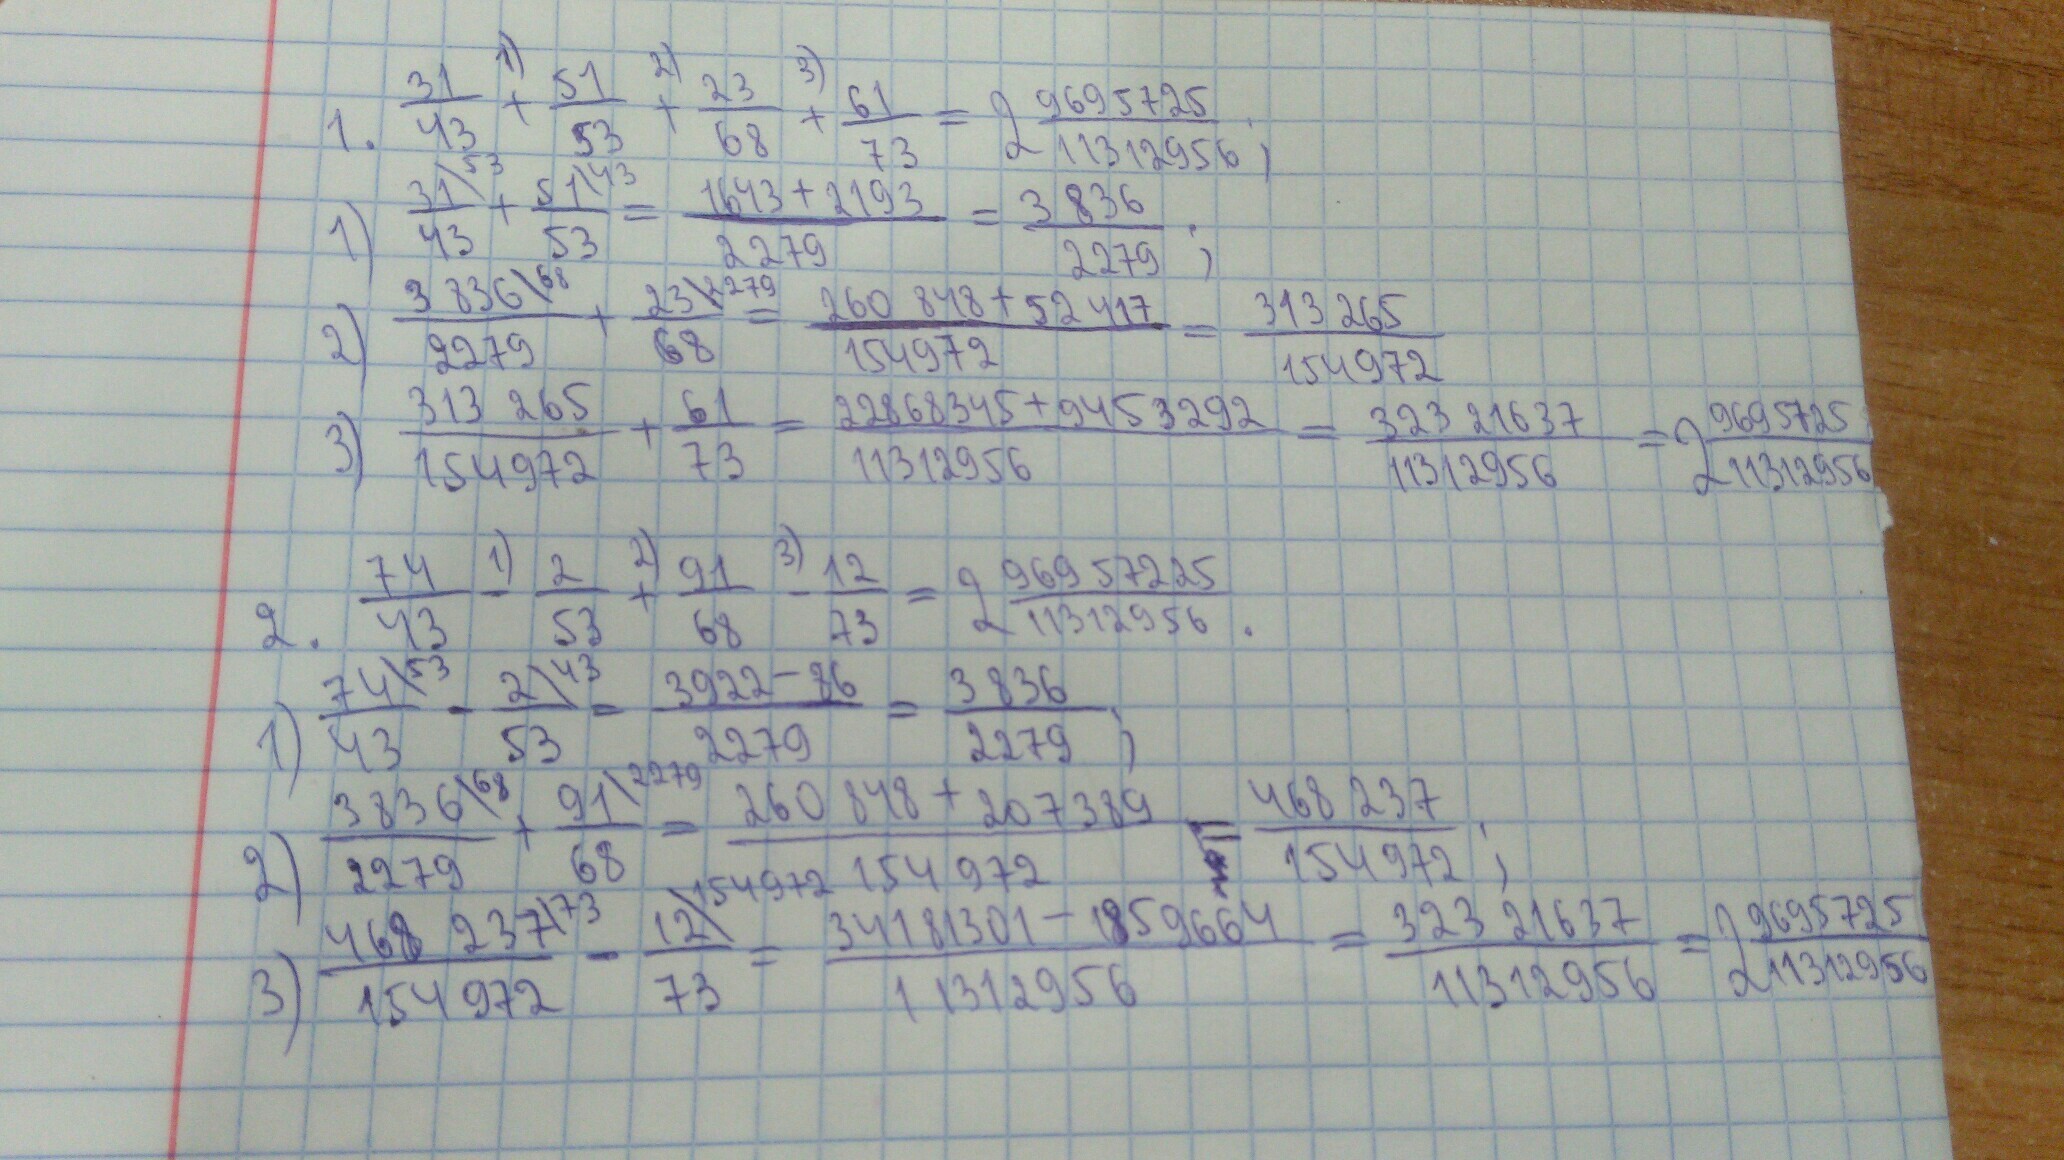 1. 31/43 + 1) 51/53 + 2) 23/68 + 3) 61/73 = 2 9695725/11312956;
1) 31\53/43 + 51\43/53 = 1643+2193/2279 = 3836/2279;
2) 3836\68/2279 + 23\2279/68 = 260 848+52417/154972 = 313 265/154972
3) 313 265/154972 + 61/73 = 22868345+9453292/11312956 = 323 21637/11312956 = 2 9695725/11312956
2. 74/43 - 1) 2/53 + 2) 91/68 - 3) 12/73 = 2 96957225/11312956.
1) 74\53/43 - 2\43/53 = 3922-86/2279 = 3836/2279;
2) 3836\68/2279 + 91\2279/68 = 260 848+207389/154 972 = 468 237/154972;
3) 468 237\73/154 972 - 12\154972/73 = 34181301-1859664/11312956 = 323 21637/11312956 = 2 9695725/11312956